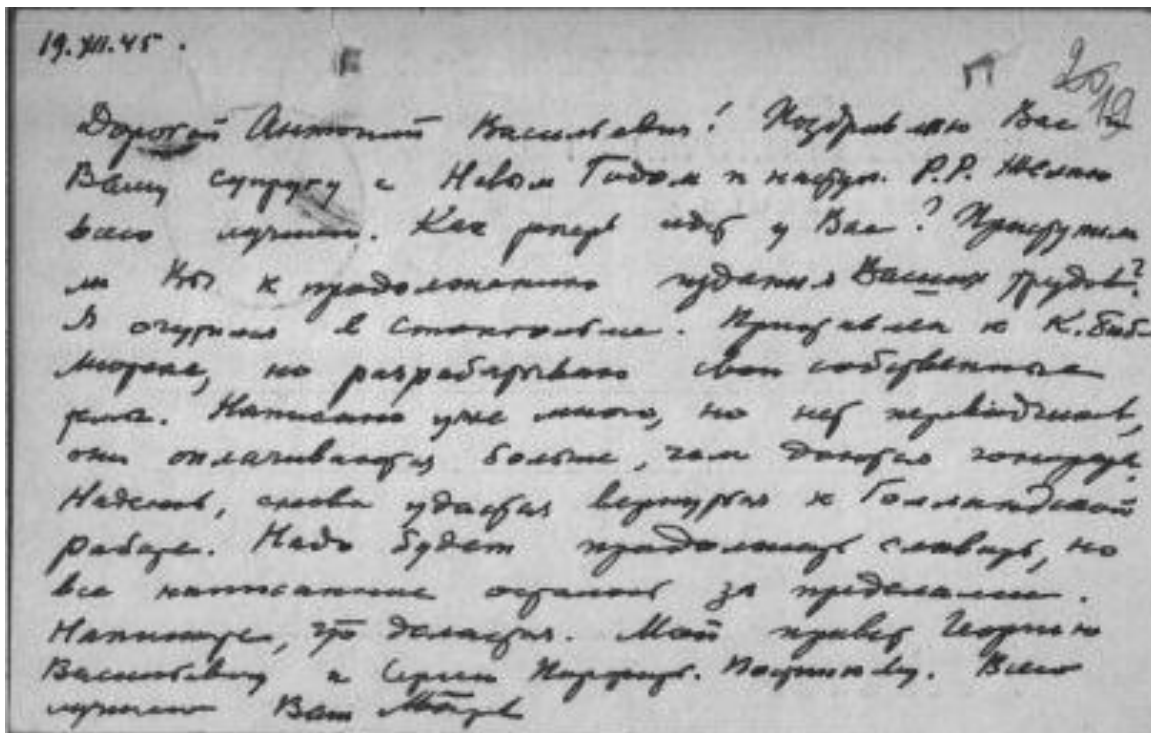 19.XII.45.
20
19
Дорогой Антоний Васильевич! Поздравляю Вас и
Вашу супругу с Новым Годом и наступ. Р.Р. Желаю
всего лучшего. Как теперь идет у Вас? Приступили
ли Вы к продолжению издания Ваших трудов?
Я очутился в Стокгольме. Приставлен к К. Биб-
лиотеке, но разрабатываю свои собственные
темы. Написано уже много, но нет переводчиков,
они оплачиваются больше, чем даются гонорары.
Надеюсь, снова удастся вернуться к Голландской
работе. Надо будет продолжить словарь, но
все написанное осталось за пределами.
Напишите, что делается. Мой привет Георгию
Васильевичу и Сергею Постникову. Всего
лучшего Ваш